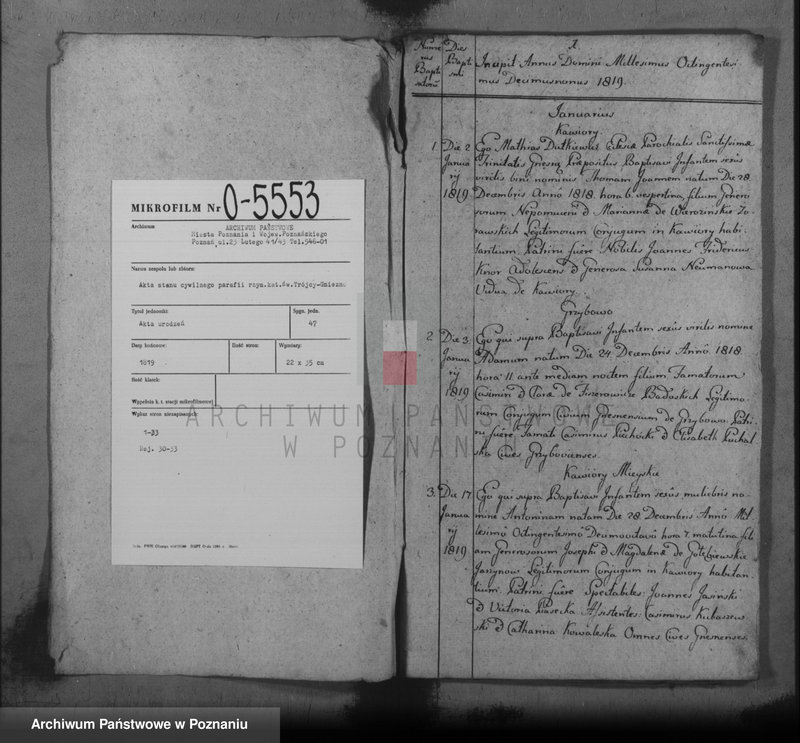 MIKROFILM Nr O-5553
Archiwum
ARCHIWUM PAŃSTWOWE
Miasta Poznania i Wojew.Poznańskiego
Poznań ul.23 Lutego 41/43 Tel.546-01
Nazwa zespołu lub zbioru:
Akta stanu cywilnego parafii rzym.kat.św.Trójcy-Gniezno
Tytuł jednostki:
Sygn. jedn.
Akta urodzeń
47
Daty końcowe:
Ilość stron:
Wymiary:
1819
22 x 35 cm
Ilość klatek:
Wypełnia k. t. stacji mikrofilmowej
Wykaz stron niezapisanych:
1-33
Rej. 30-33
1
Numerus Baptisatorũ
Dies Baptisati
Incipit Annus Domini Millesimus Octingentesi
mus Decimusnonus 1819.
Januarius
Kawiory
1. Die 2 Ego Mathias Dutkiewicz Ecclesiæ Parochialis Sanctissimæ
Januarij Trinitatis Gnesnæ Præpositus Baptisavi Infantem sexûs
virilis bini nominis Thomam Joannem natum Die 28.
1819 Decembris Annô 1818. hora 6. vespertina, filium Genero
sorum Nepomuceni &
Legitimorum Conjugum in Kawiory habi
tantium. Patrini fuêre Nobilis Joannes Fridericus
Knor Adolescens & Generosa Susanna Neumanowa
Vidua de Kawiory.
Grzybowo
2. Die 3. Ego qui supra Baptisavi Infantem sexûs virilis nomine
Januarij Adamum natum Die 24. Decembris Annô 1818.
hora 11. ante mediam noctem filium Famatorum
1819 Casimiri & Claræ de
Legitimo
rum Conjugum Civium Gnesnensium de Grzybowo. Patri
ni fuêre Famati Casimirus Puchocki & Elisabeth Puchal
ska Cives Grzybovienses.
Kawiory Mieyskie
3. Die 17 Ego qui supra Baptisavi Infantem sexûs muliebris no
Januarij mine Antoninam natam Die 28. Decembris Annô Mil
lesimô Octingentesimô Decimooctavô hora 7. matutina fili
1819 am Generosorum Josephi & Magdalenæ de
Legitimorum Conjugum in Kawiory habitan
tium. Patrini fuêre Spectabiles: Joannes Jasinski
& Victoria Piasecka Assistentes: Casimirus Kubaszew
ski & Catharina Kowaleska Omnes Cives Gnesnenses.
ARCHIWUM PAŃSTWOWE
W POZNANIU
Archiwum Państwowe w Poznaniu